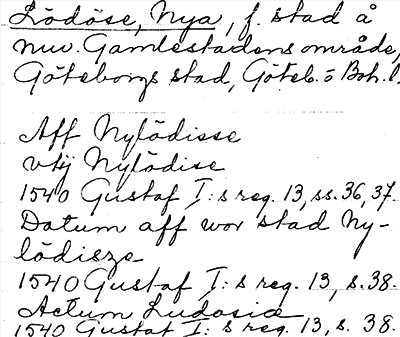 Lödöse, Nya, f. stad å
nuv. Gamlestadens område,
Göteborgs stad, Göteb. o Boh. l.
Aff Nylödisse
vtij Nylödise
1540 Gustaf I:s reg. 13, ss. 36, 37.
Datum aff wor stad Ny-
lödisze
1540 Gustaf I:s reg. 13, s. 38.
Actum Ludosia
1540 Gustaf I:s reg. 13, s. 38.